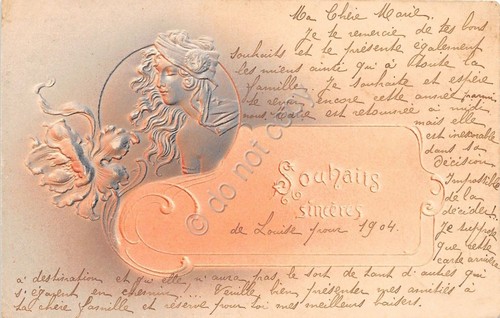 Ma Chère Marie.
Je te remercie de tes bons
souhaits et te présente également
les miens ainsi qu'à toute la
famille. Je souhaite et espère
te revoir encore cette année parmi
nous. Marie est retournée à midi
mais elle
est inexorable
dans sa
décision
Impossible
de la
décider!
Je suppose
que cette
carte arrivera
Souhaits
sincères
de Louise pour 1904.
à destination et qu'elle n'aura pas le sort de tant d'autres qui
s'égarent en chemin!... Veuille bien présenter mes amitiés à
ta chère famille et réserve pour toi mes meilleurs baisers.
do not copy